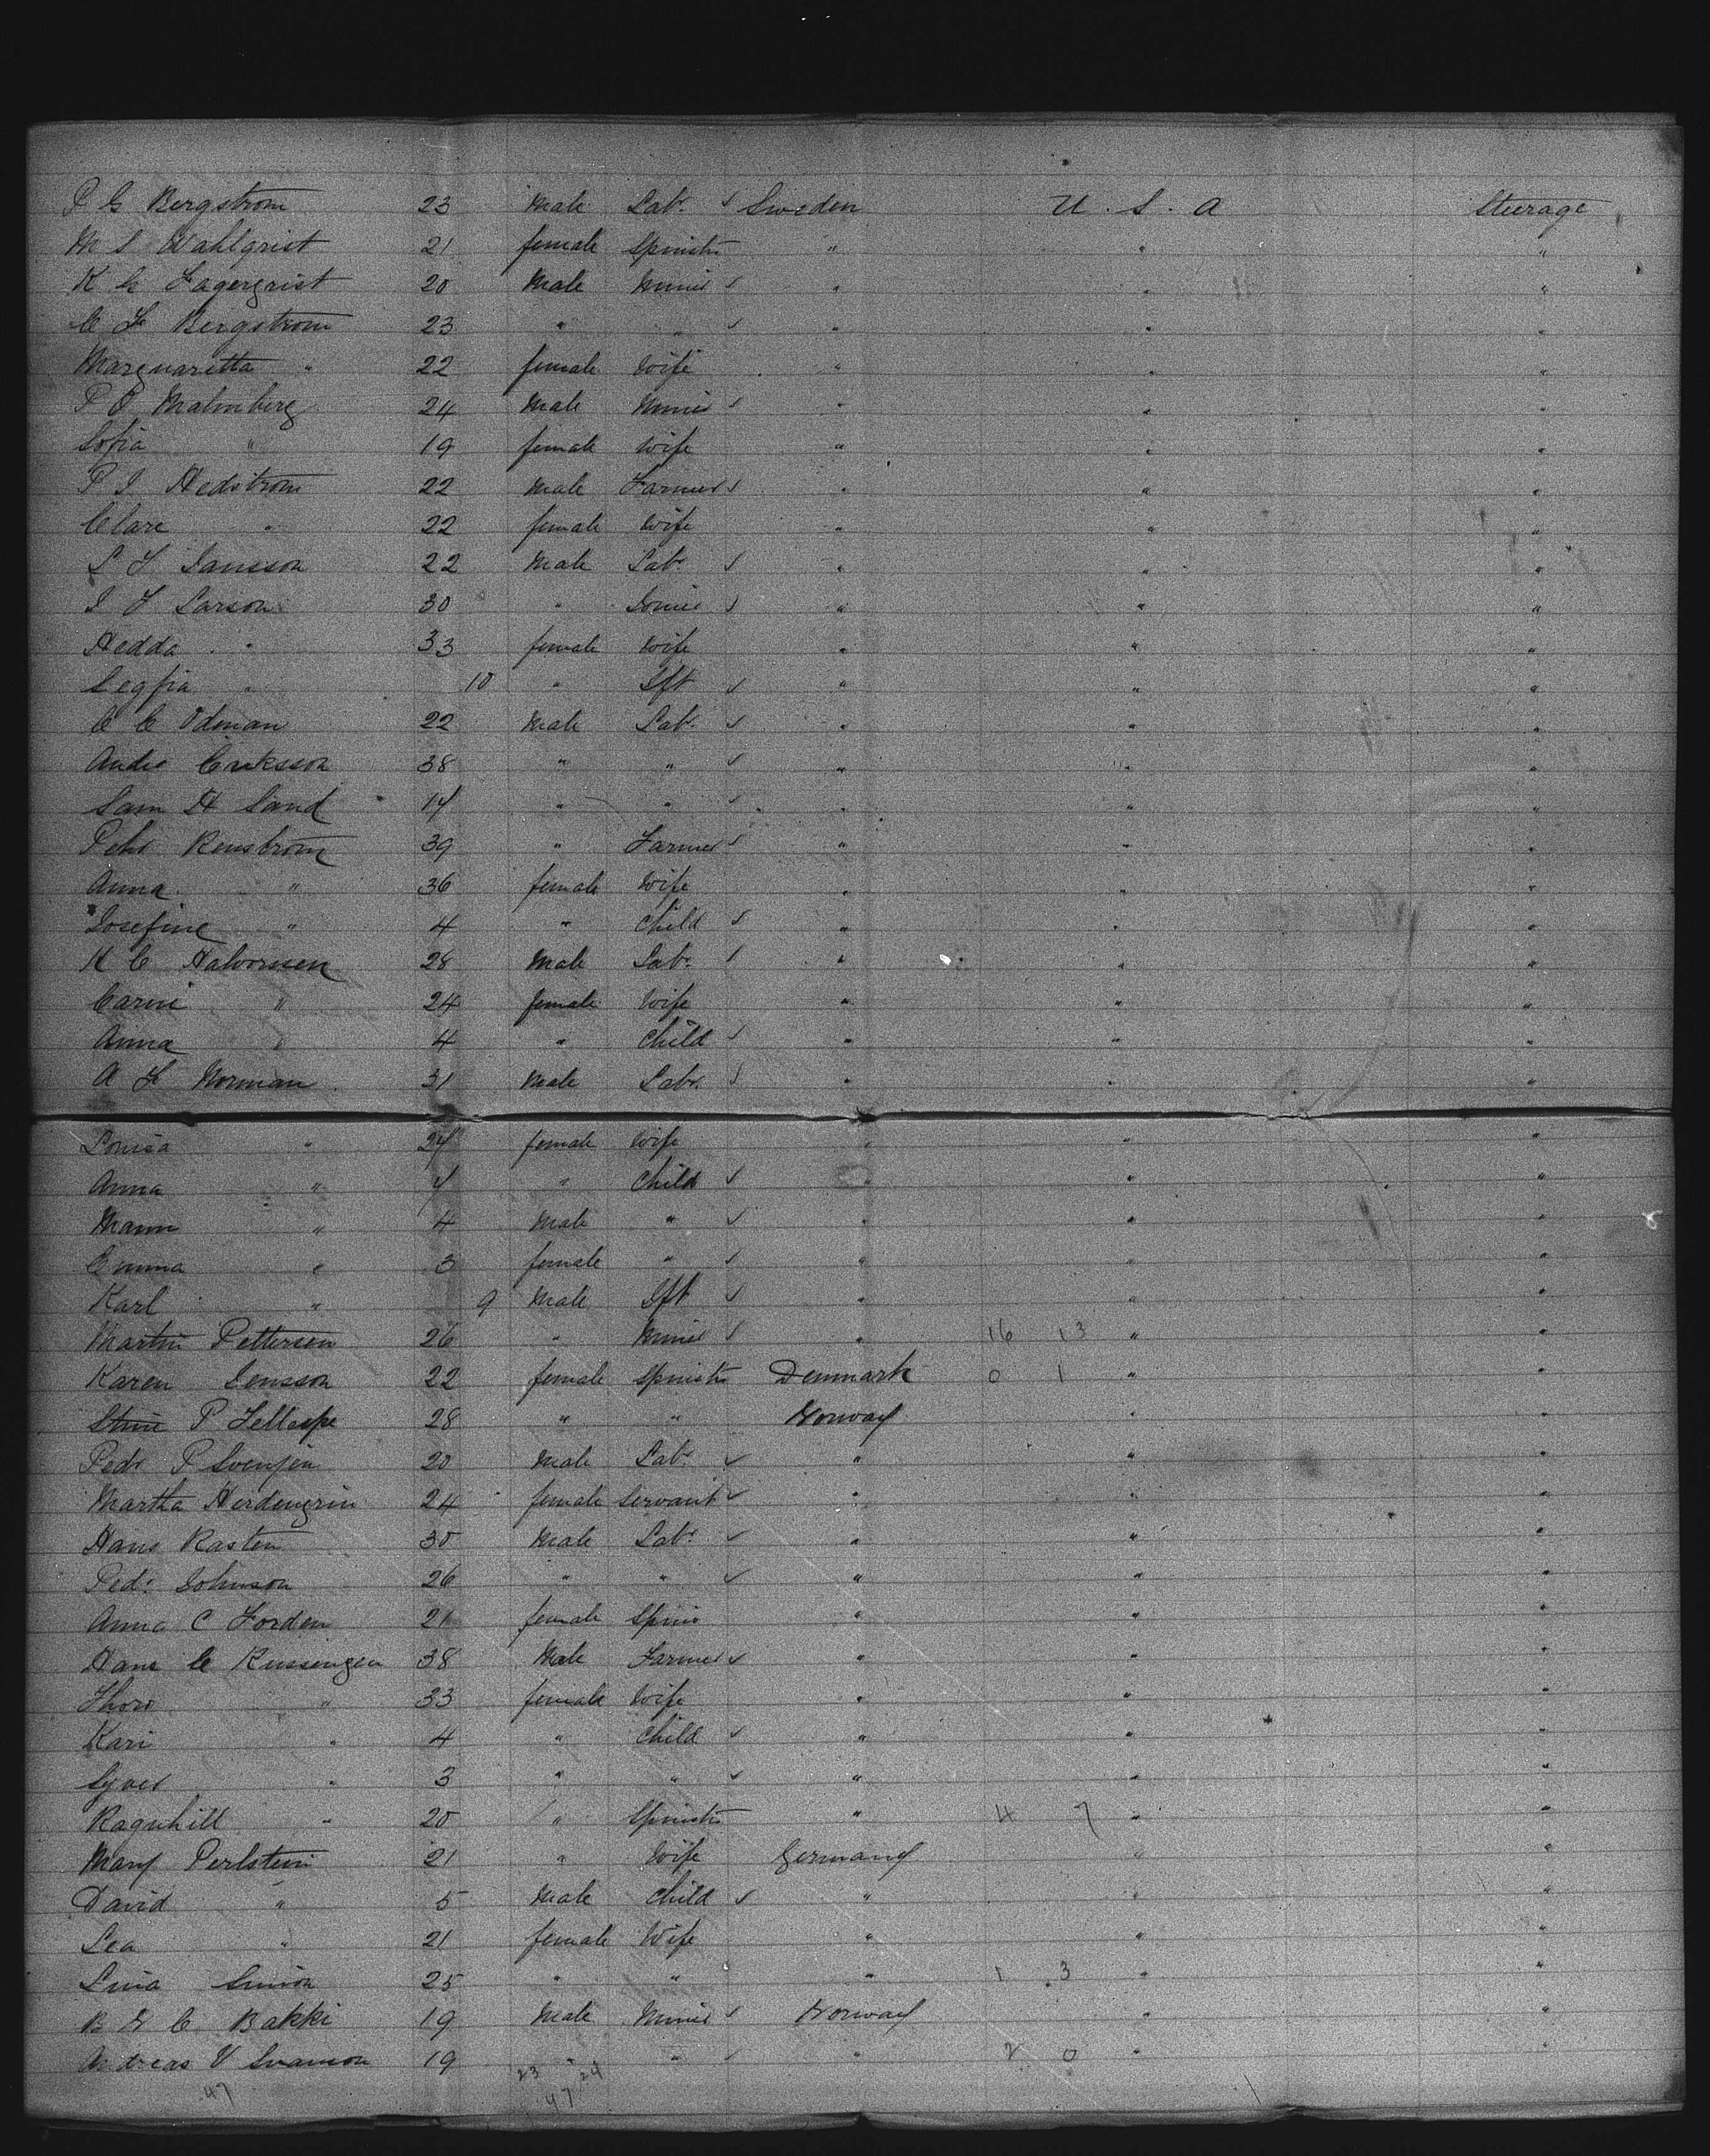 P G Bergstrom 23 Male Lab. ✓ Sweden U. S. A Steerage
M S Wahlqrist 21 female Spinstr " " "
K G Fagerqrist 20 Male Miner ✓ " " "
C F Bergstrom 23 " " ✓ " " "
Marguaretta " 22 female Wife " " "
P O Malmberg 24 Male Miner ✓ " " "
Sofia " 19 female Wife " " "
P I Hedstrom 22 Male Farmer ✓ " " "
Clare " 22 female Wife " " "
S F Jansson 22 Male Lab. ✓ " " "
I F Larson 30 " ✓ " " "
Hedda " 33 female Wife " " "
" 10 " Ift ✓ " " "
C C Odman 22 Male Lab. ✓ " " "
Andr Eriksson 38 " " ✓ " " "
Sam H Sand 14 " " ✓ " " "
Pehr Renstrom 39 " Farmer ✓ " " "
Anna " 36 female Wife " " "
Josefine " 4 " Child ✓ " " "
H C Halvorsen 28 Male Lab. ✓ " " "
Carni " 24 female Wife " " "
Anna " 4 " Child ✓ " " "
A F Norman 31 Male Lab. ✓ " " "
Louisa " 24 female Wife " " "
Anna " 4 " Child ✓ " " "
Mann " 4 Male " ✓ " " "
Emma " 3 female " ✓ " " "
Karl " 9 Male Ift ✓ " " "
Martin Pettersen 26 " Miner ✓ " 16 13 " "
Karen Jensson 22 female Spinstr Denmark 0 1 " "
P 28 " " Norway " "
Pedr P Svenjen 20 Male Lab. ✓ " " "
Martha 24 female Servant ✓ " " "
Hans Rasten 30 Male Lab. ✓ " " "
Ped. Johnson 26 " " ✓ " " "
Anna C Forden 21 female Spins " " "
Hans C 38 Male Farmer ✓ " " "
Thoro " 33 female Wife " " "
Kari " 4 " Child ✓ " " "
Syver " 3 " " ✓ " " "
Ragnhill " 20 " Spinstr " 4 7 " "
Mary Perlstein 21 " Wife Germany " "
David " 5 Male Child ✓ " " "
Lea " 21 female Wife " " "
Lina Simon 25 " " " 1 3 " "
B H C Bakki 19 Male Miner ✓ Norway " "
Andreas V Svanson 19 " " ✓ " 2 0 " "
47 23 24
47